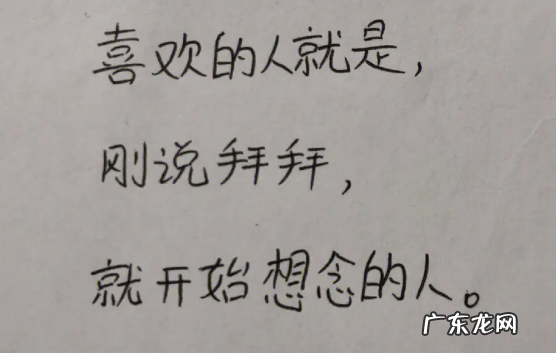 喜欢的人就是，
刚说拜拜，
就开始想念的人。
广东龙网